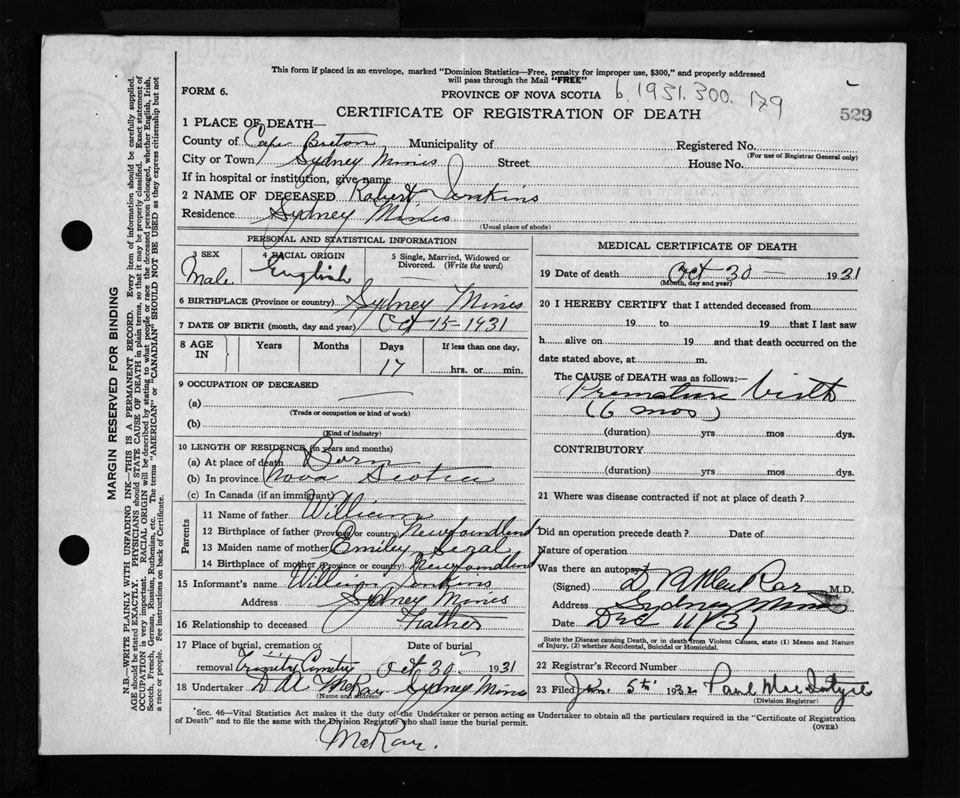 This form if placed in an envelope, marked "Dominion Statistics—Free, penalty for improper use, $300," and properly addressed
will pass through the Mail "FREE"
FORM 6.
PROVINCE OF NOVA SCOTIA
b. 1931. 300. 179
CERTIFICATE OF REGISTRATION OF DEATH
529
1 PLACE OF DEATH—
County of Cape Breton Municipality of Registered No.
(For use of Registrar General only)
City or Town Sydney Mines Street House No.
If in hospital or institution, give name
2 NAME OF DECEASED Robert Jenkins
Residence Sydney Mines
(Usual place of abode)
PERSONAL AND STATISTICAL INFORMATION
3 SEX 4 RACIAL ORIGIN 5 Single, Married, Widowed or Divorced. (Write the word)
Male English
6 BIRTHPLACE (Province or country) Sydney Mines
7 DATE OF BIRTH (month, day and year) Oct 15-1931
8 AGE IN Years Months Days If less than one day,
17 hrs. or min.
9 OCCUPATION OF DECEASED
(a)
(Trade or occupation or kind of work)
(b)
(Kind of industry)
10 LENGTH OF RESIDENCE (in years and months)
(a) At place of death Born
(b) In province Nova Scotia
(c) In Canada (if an immigrant)
Parents
11 Name of father William
12 Birthplace of father (Province or country) Newfoundland
13 Maiden name of mother Emiley
14 Birthplace of mother (Province or country) Newfoundland
15 Informant's name William Jenkins
Address Sydney Mines
16 Relationship to deceased Father
17 Place of burial, cremation or removal Date of burial
Trinity Cemetery Oct 30 1931
18 Undertaker McRay Sydney Mines
(Name and address)
MEDICAL CERTIFICATE OF DEATH
19 Date of death Oct 30 — 1931
(Month, day and year)
20 I HEREBY CERTIFY that I attended deceased from
19 to 19 that I last saw
h alive on 19 and that death occurred on the
date stated above, at m.
The CAUSE OF DEATH was as follows:—
Premature birth
(6 mos)
(duration) yrs mos dys.
CONTRIBUTORY
(duration) yrs mos dys.
21 Where was disease contracted if not at place of death?
Did an operation precede death? Date of
Nature of operation
Was there an autopsy
(Signed) M.D.
Address Sydney Mines
Date Dec 11/31
State the Disease causing Death, or in death from Violent Causes, state (1) Means and Nature
of Injury, (2) whether Accidental, Suicidal or Homicidal.
22 Registrar's Record Number
23 Filed Jan. 5th 1932 Paul MacIntyre
(Division Registrar)
*Sec. 46—Vital Statistics Act makes it the duty of the Undertaker or person acting as Undertaker to obtain all the particulars required in the "Certificate of Registration
of Death" and to file the same with the Division Registrar who shall issue the burial permit.
(OVER)
McRay.
MARGIN RESERVED FOR BINDING
N.B.—WRITE PLAINLY WITH UNFADING INK—THIS IS A PERMANENT RECORD. Every item of information should be carefully supplied.
AGE should be stated EXACTLY. PHYSICIANS should STATE CAUSE OF DEATH in plain terms, so that it may be properly classified. Exact statement of
OCCUPATION is very important. RACIAL ORIGIN will be described by stating to what people or race the deceased person belonged, whether English, Irish,
Scotch, French, German, Russian, Ruthenian, etc. The terms "AMERICAN" or "CANADIAN" SHOULD NOT BE USED as they express citizenship but not
a race or people. See instructions on back of Certificate.